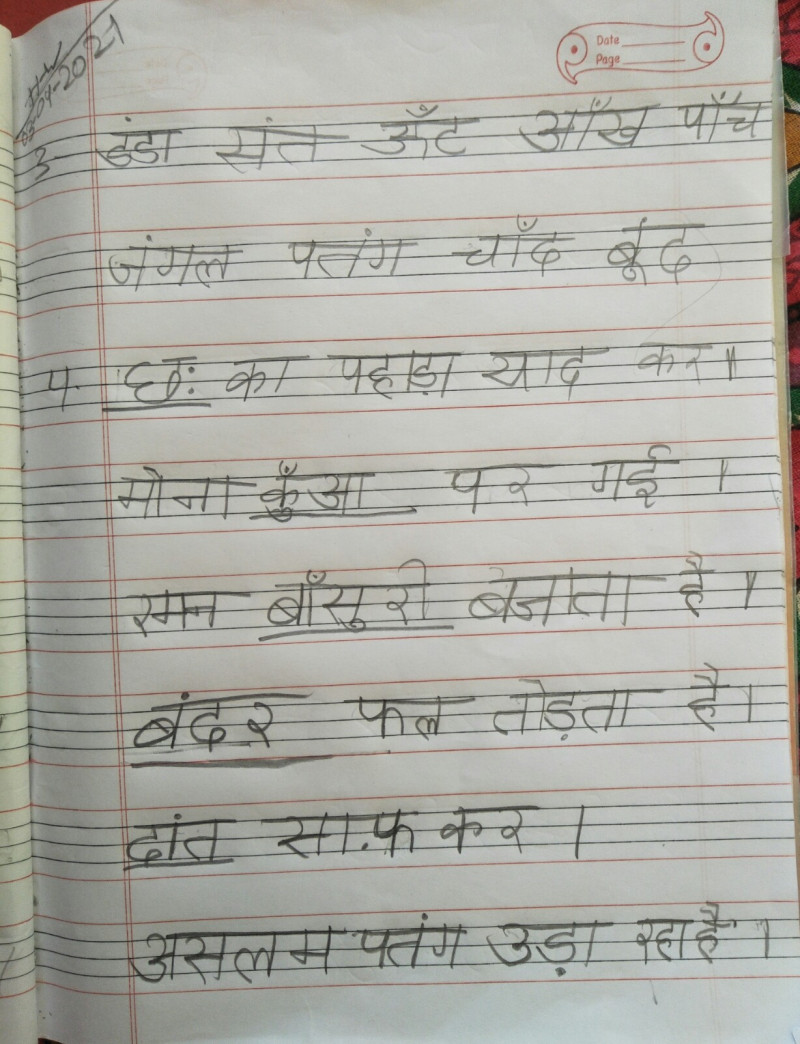 H.W
03-04-2021
Date
Page
3 डंडा संत ऊँट आँख पाँच
जंगल पतंग चाँद बूंद
4. छः का पहाड़ा याद कर॥
मोना कुँआ पर गई ।
रमन बाँसुरी बजाता है॥
बंदर फल तोड़ता है।
दांत साफ़ कर ।
असलम पतंग उड़ा रहा है ।